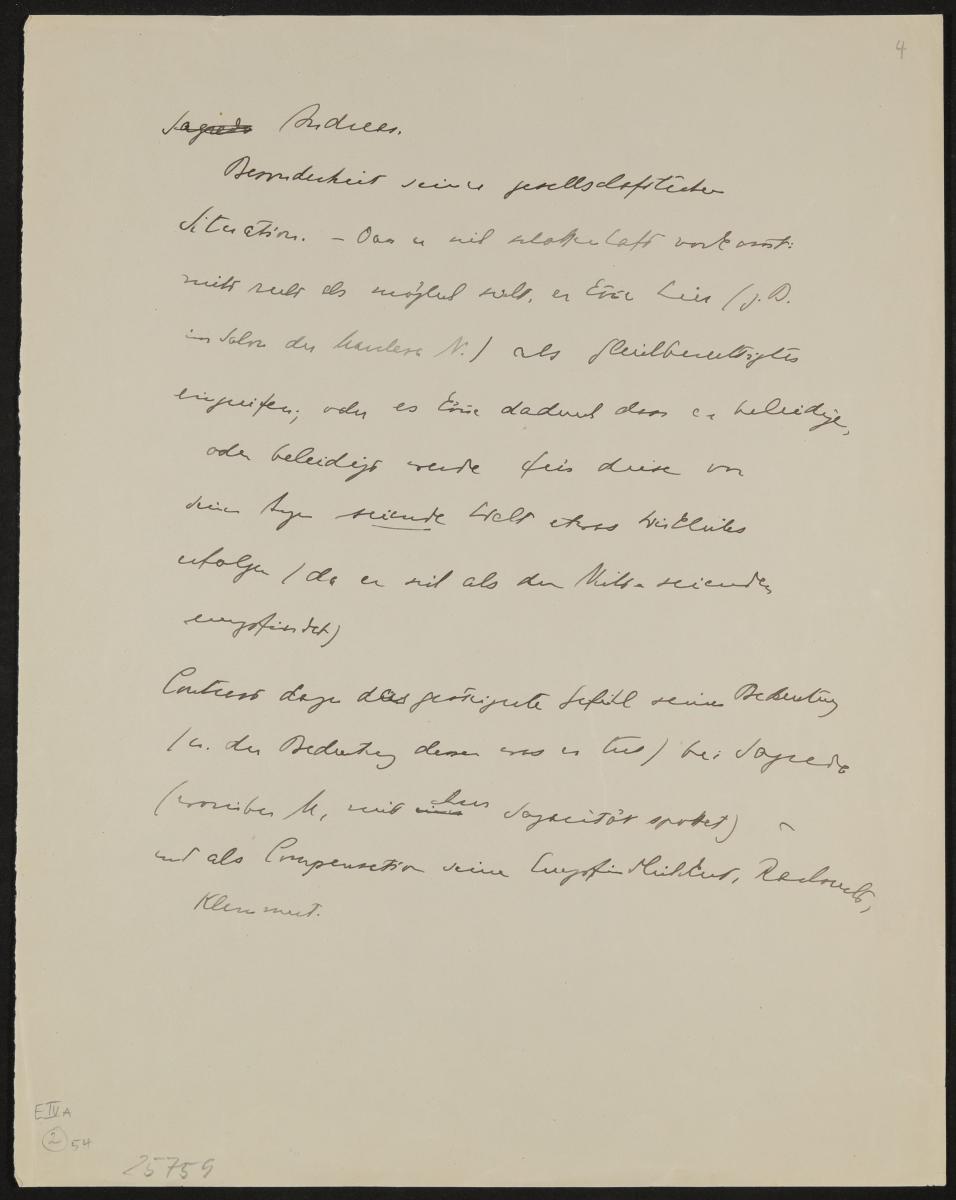 4
Sagredo Andreas.
Besonderheit seiner gesellschaftlichen
Situation. – Dass er sich schattenhaft vorkommt:
nicht recht als möglich sieht, er könne hier (z. B.
im Salon der Marchesa N.) als gleichberechtigtes
eingreifen; oder es könne dadurch dass er beleidige,
oder beleidigt werde für diese vor
seinen Augen seiende Welt etwas Wirkliches
erfolgen (da er sich als den Nicht-seienden
empfindet)
Contrast dazu das gesteigerte Gefühl seiner Bedeutung
(u. der Bedeutung dessen was er tut) bei Sagredo
(worüber M, mit Sagacität spottet) –
und als Compensation seine Empfindlichkeit, Rachsucht,
Kleinmut.
E IV A
2 54
25759